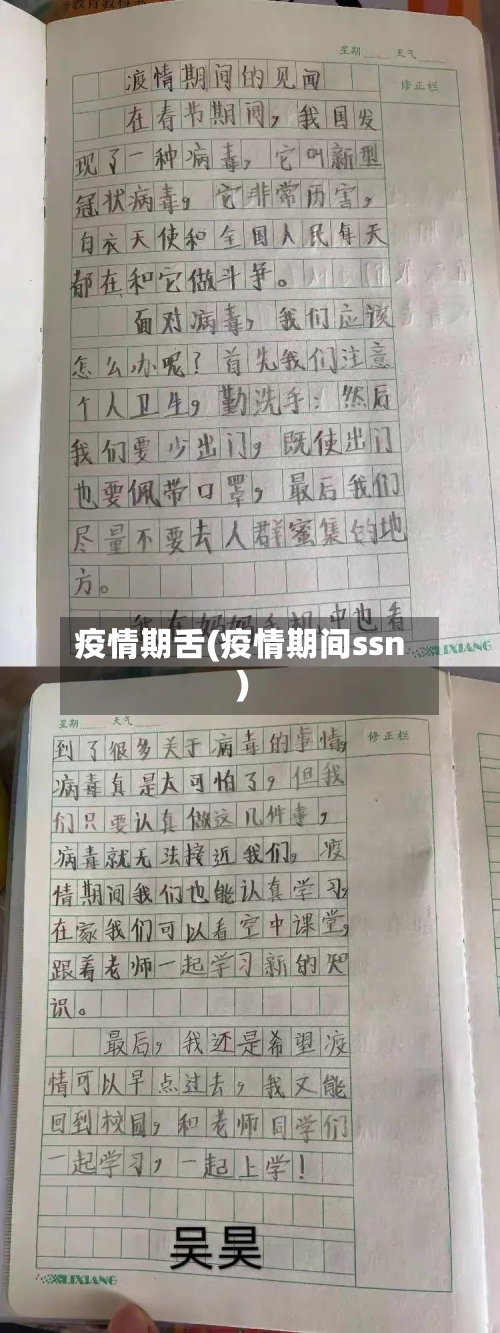 星期 天气
修正栏
疫情期间的见闻
在春节期间，我国发
现了一种病毒，它叫新型
冠状病毒，它非常历害，
白衣天使和全国人民每天
都在和它做斗争。
面对病毒，我们应该
怎么办呢？首先我们注意
个人卫生，勤洗手；然后
我们要少出门，既使出门
也要佩带口罩，最后我们
尽量不要去人群蜜集的地
方。
我在妈妈手机中也看
LIXIANG
疫情期舌(疫情期间ssn
)
星期 天气
修正栏
到了很多关于病毒的事情，
病毒真是太可怕了，但我
们只要认真做这几件事，
病毒就无法接近我们，疫
情期间我们也能认真学习，
在家我们可以看空中课堂，
跟着老师一起学习新的知
识。
最后，我还是希望疫
情可以早点过去，我又能
回到校园，和老师同学们
一起学习，一起上学！
吴昊
LIXIANG